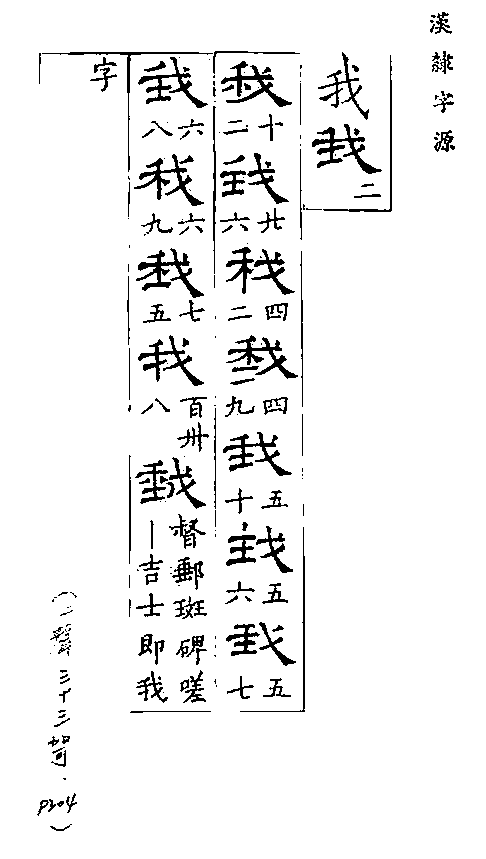 漢隸字源
我我二
我十二我廿六我四二我四九我五十我五六我五七
我六八我六九我七五我百卅八我督郵斑碑嗟｜吉士即我
字
(上聲三十三哿．P204)